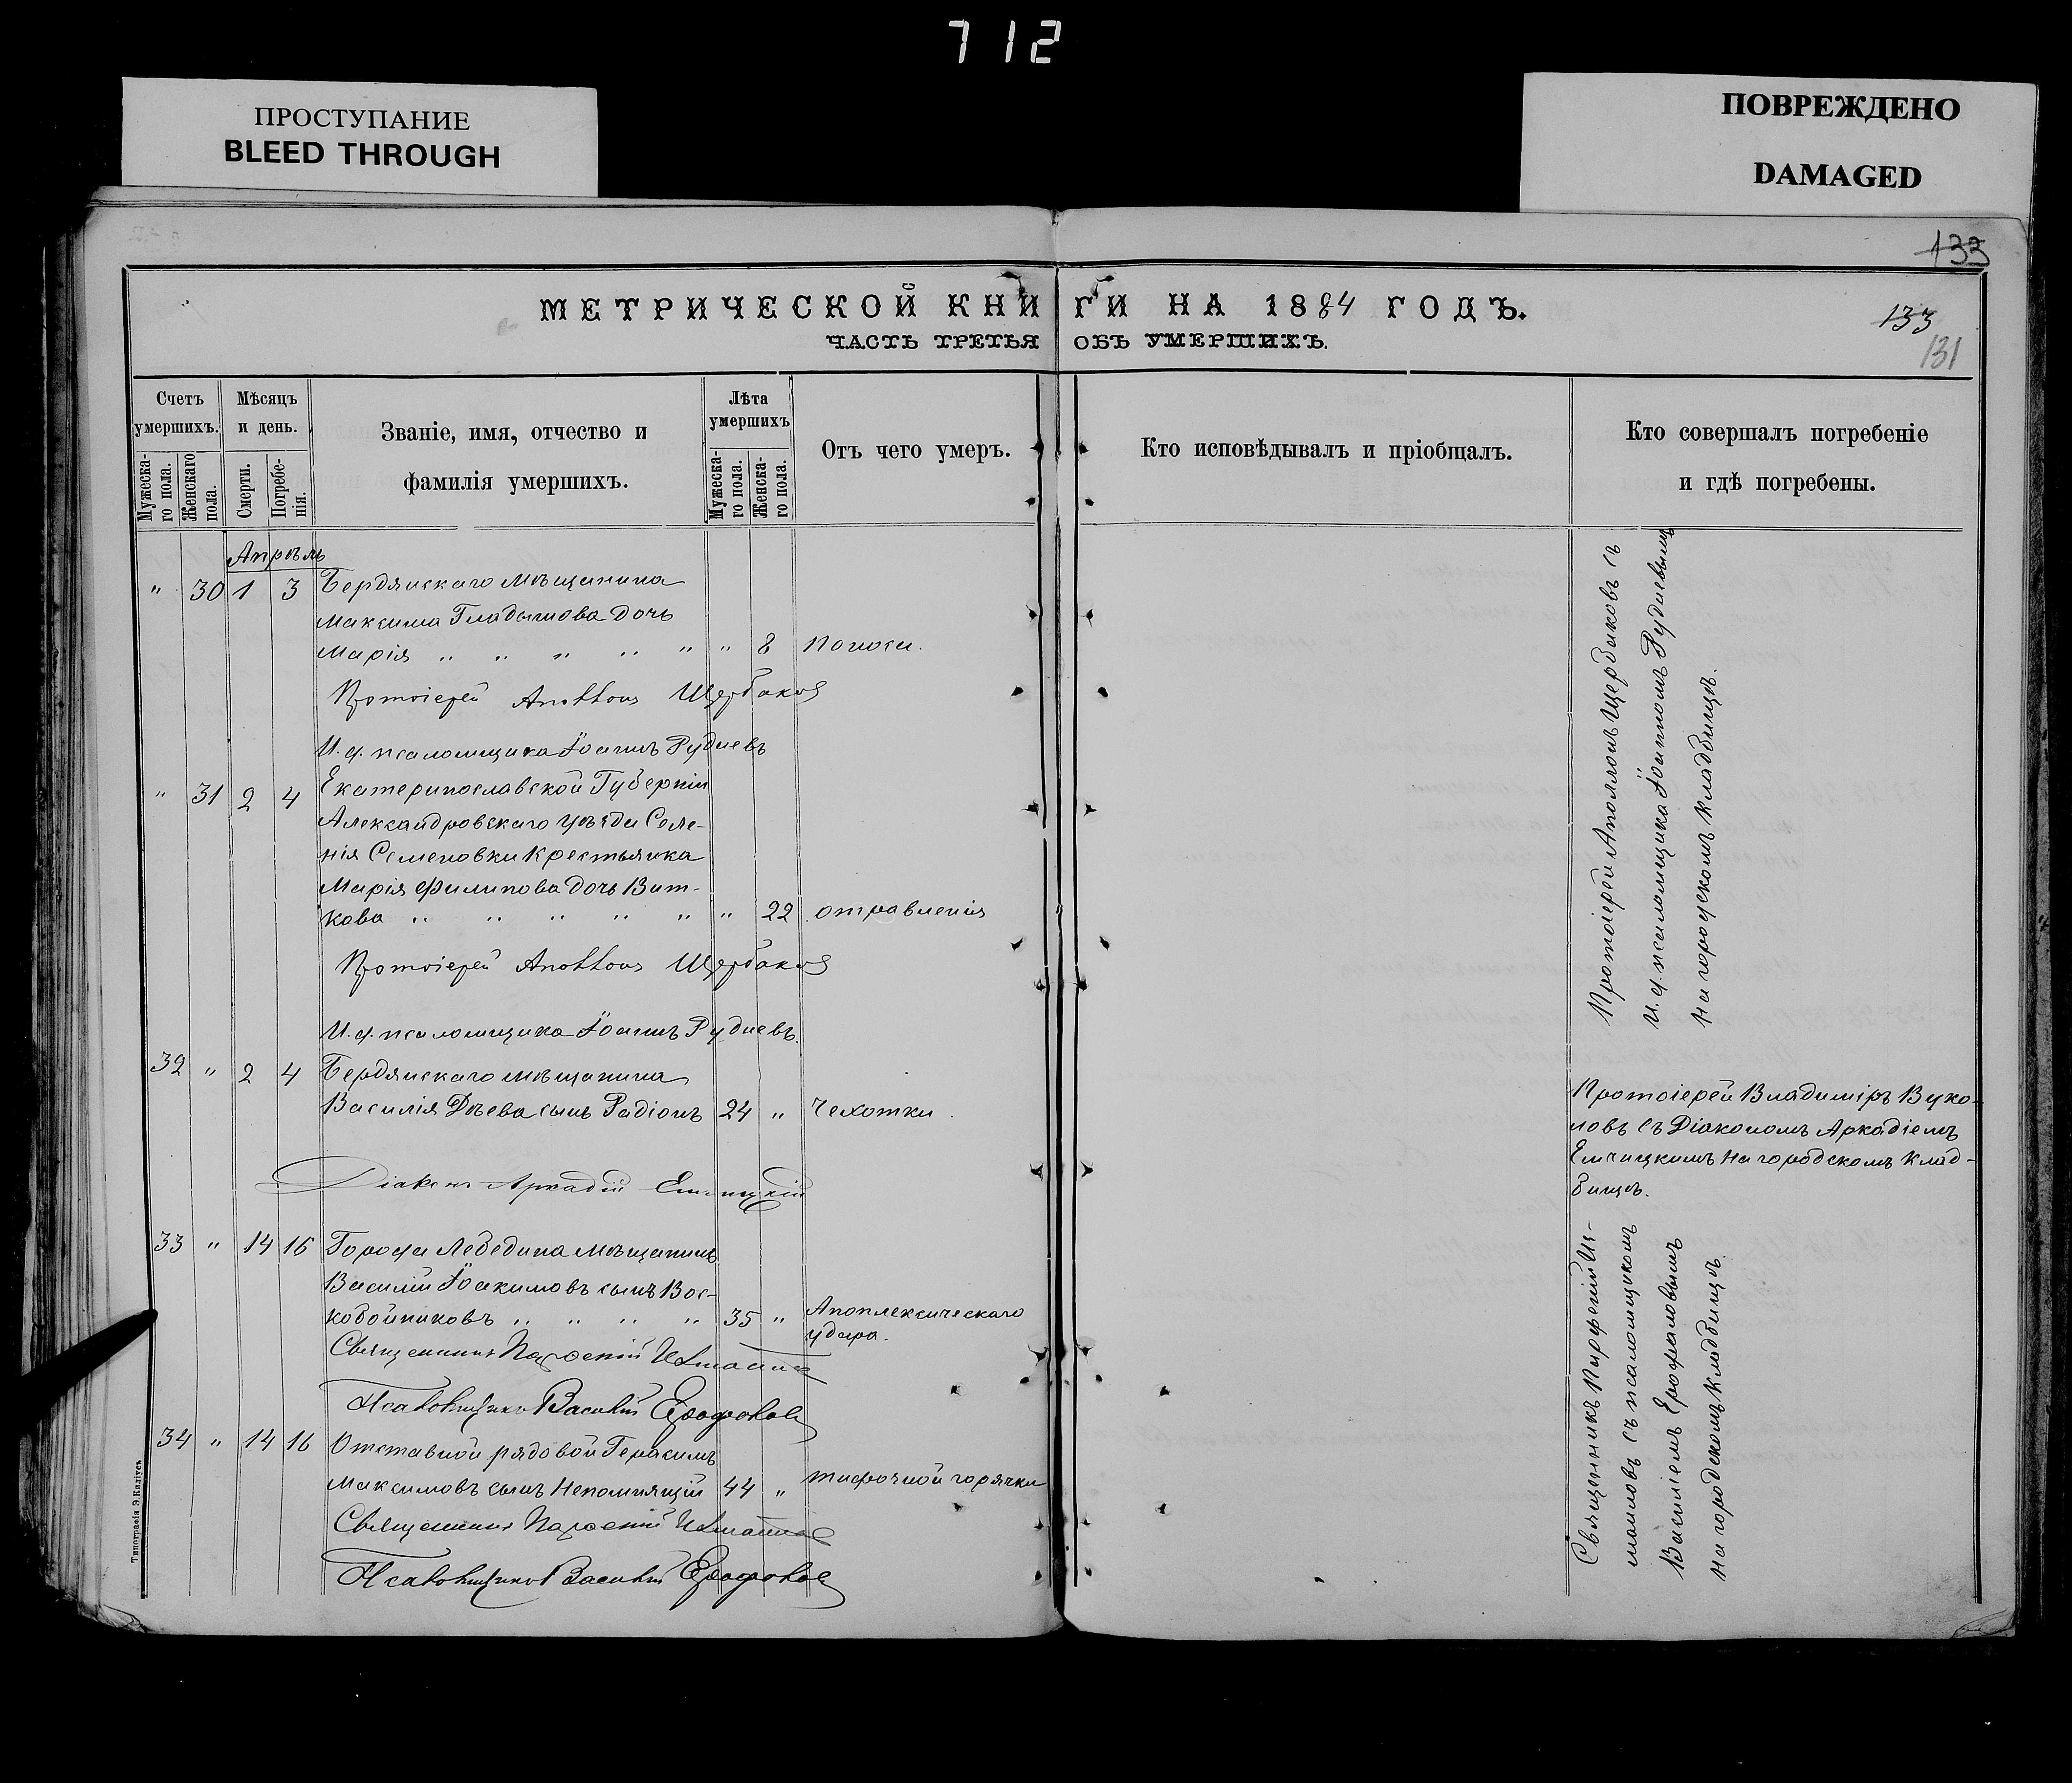 712
ПРОСТУПАНИЕ
BLEED THROUGH
ПОВРЕЖДЕНО
DAMAGED
133
МЕТРИЧЕСКОЙ КНИГИ НА 1884 ГОДЪ.
133
ЧАСТЬ ТРЕТЬЯ ОБЪ УМЕРШИХЪ.
131
Счетъ умершихъ.
Мужеска-го пола.
Женскаго пола.
Мѣсяцъ и день.
Смерти.
Погребе-нія.
Званіе, имя, отчество и
фамилія умершихъ.
Лѣта умершихъ
Мужеска-го пола.
Женска-го пола.
Отъ чего умеръ.
Кто исповѣдывалъ и пріобщалъ.
Кто совершалъ погребеніе
и гдѣ погребены.
Апрѣль
" 30 1 3 Бердянскаго мѣщанина
Максима Гладышова дочь
Марія " " " " " " 8 Поноса.
Протоіерей Аполлонъ Щербаковъ
И. д. псаломщика Іоаннъ Рудневъ
" 31 2 4 Екатеринославской Губерніи
Александровскаго уѣзда Селе-
нія Семеновки крестьянка
Марія Филипова дочь Вит-
кова " " " " " " 22 отравленія
Протоіерей Аполлонъ Щербаковъ
И. д. псаломщика Іоаннъ Рудневъ.
Протоіерей Аполлонъ Щербаковъ съ
и. д. псаломщика Іоанномъ Рудневымъ
на городскомъ кладбищѣ.
32 " 2 4 Бердянскаго мѣщанина
Василія Дѣева сынъ Радіонъ 24 " Чехотки.
Діаконъ Аркадій Емчицкій
Протоіерей Владиміръ Вуко-
ловъ съ Діакономъ Аркадіемъ
Емчицкимъ на городскомъ клад-
бищѣ.
33 " 14 16 Города Лебедина мѣщанинъ
Василій Іоакимовъ сынъ Вос-
кобойниковъ " " " " 35 " Апоплексическаго
удара.
Священникъ Парфеній
Псаломщикъ Василій Ерофаловъ
34 " 14 16 Отставной рядовой Герасимъ
Максимовъ сынъ Непомнящій 44 " тифозной горячки
Священникъ Парфеній
Псаломщикъ Василій Ерофаловъ
Священникъ Парфеній Из-
маиловъ съ псаломщикомъ
Василіемъ Ерофаловымъ
на городскомъ кладбищѣ.
Типографія Э. Каліусъ